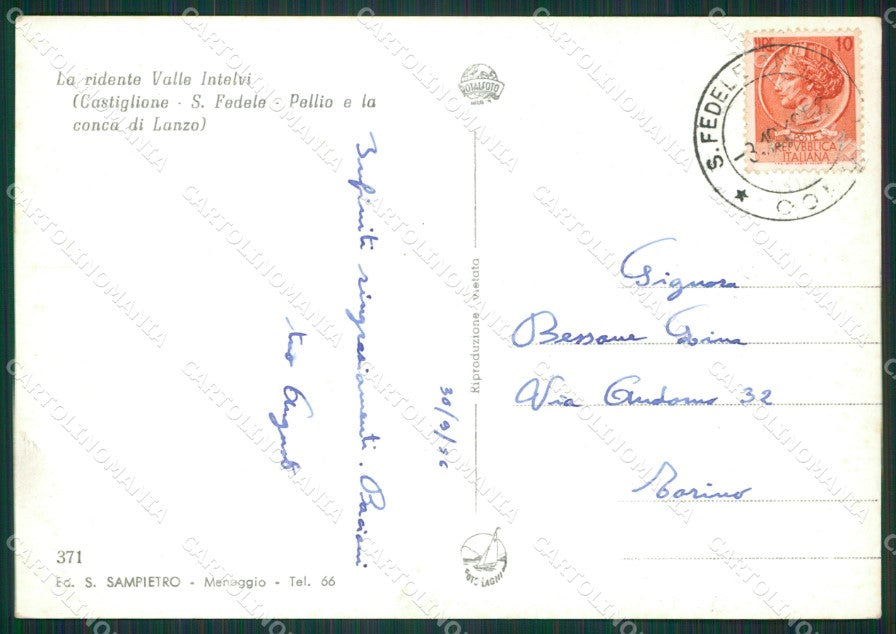 La ridente Valle Intelvi
(Castiglione - S. Fedele - Pellio e la
conca di Lanzo)
ROTALFOTO
LIRE 10
POSTE
REPVBBLICA
ITALIANA
S. FEDELE
Infiniti ringraziamenti. Bacioni
tuo
30/9/56
Riproduzione vietata
Signora
Bessone
Via Andorno 32
Torino
371
Ed. S. SAMPIETRO - Menaggio - Tel. 66
FOTO LAGHI
CARTOLINOMANIA